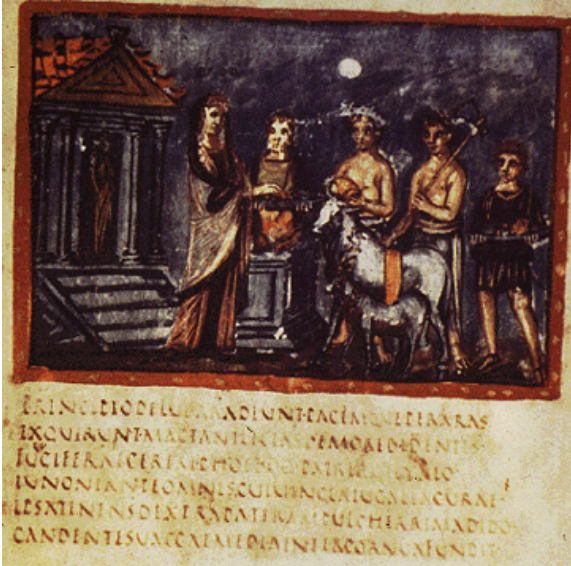 PRINCIPIODELUBRAADIUNTPACEMQUEPERARAS
EXQUIRUNTMACTANTLECTASDEMOREBIDENTIS
CERERIPHOEBOQPATRIQ
IUNONIANTEOMNESCUIUINCLAIUGALIACURAE
IPSATENENSDEXTRAPATERAMPULCHERRIMADIDO
CANDENTESUACCAEMEDIAINTERCORNUAFUNDIT